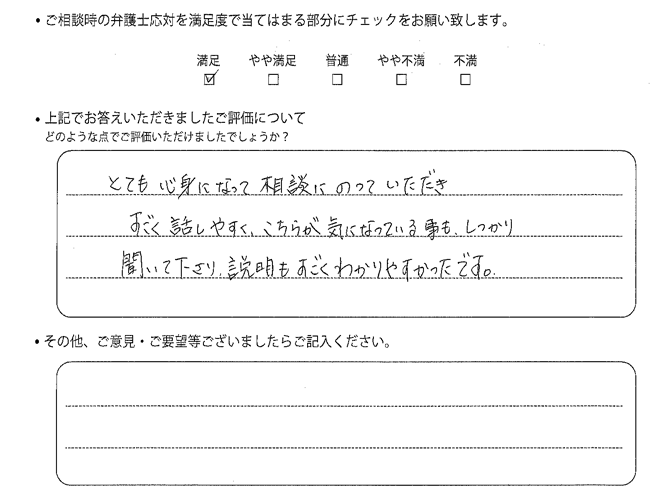 ・ご相談時の弁護士応対を満足度で当てはまる部分にチェックをお願い致します。
満足 やや満足 普通 やや不満 不満
☑ □ □ □ □
・上記でお答えいただきましたご評価について
どのような点でご評価いただけましたでしょうか？
とても心身になって相談にのっていただき
すごく話しやすく、こちらが気になっている事も、しっかり
聞いて下さり、説明もすごくわかりやすかったです。
・その他、ご意見・ご要望等ございましたらご記入ください。